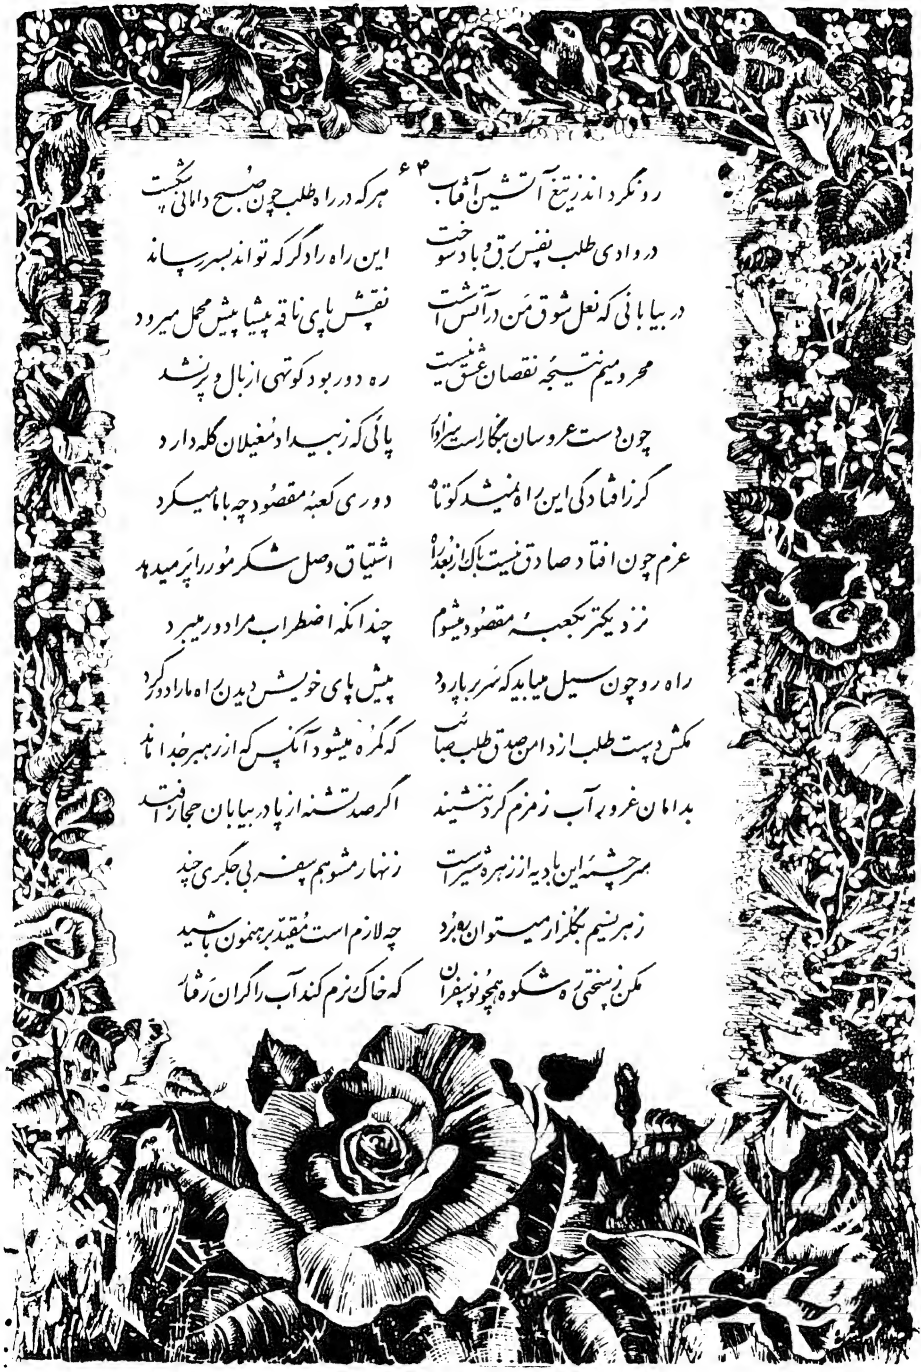 ۶۴
رو نگرداند ز تیغ آتشین آفتاب هر که در راه طلب چون صبح دامانی شکست
در وادی طلب نفس برق و باد سوخت این راه را دگر که تواند بسر رساند
در بیابانی که نعل شوق من در آتش است نقش پای ناقه پیشاپیش محمل میرود
محرومیم نتیجه نقصان عشق نیست ره دور بود کوتهی از بال و پر نشد
چون دست عروسان بنگار است سزاوار پائی که ز بیداد مغیلان گله دارد
گر ز افتادگی این راه نمیشد کوتاه دوری کعبهٔ مقصود چه با ما میکرد
عزم چون افتاد صادق نیست باک از بعد راه اشتیاق وصل شکر مور را پر میدهد
نزدیکتر بکعبهٔ مقصود میشوم چندانکه اضطراب مرا دور میبرد
راه رو چون سیل میباید که سر بر پا رود پیش پای خویش دیدن راه ما را دور کرد
مکش دست طلب از دامن صدق طلب صائب که گمره میشود آنکس که از رهبر جدا ماند
بدامان غرور آب زمزم گرد ننشیند اگر صد تشنه از پا در بیابان حجاز افتد
سرچشمهٔ این بادیه از زهرهٔ شیر است زنهار مشو هم سفر بی جگری چند
ز هر نسیم بگلزار میتوان ره برد چه لازم است مقید برهنمون باشید
مکن ز سختی ره شکوه همچو نوسفران که خاک نرم کند آب را گران رفتار